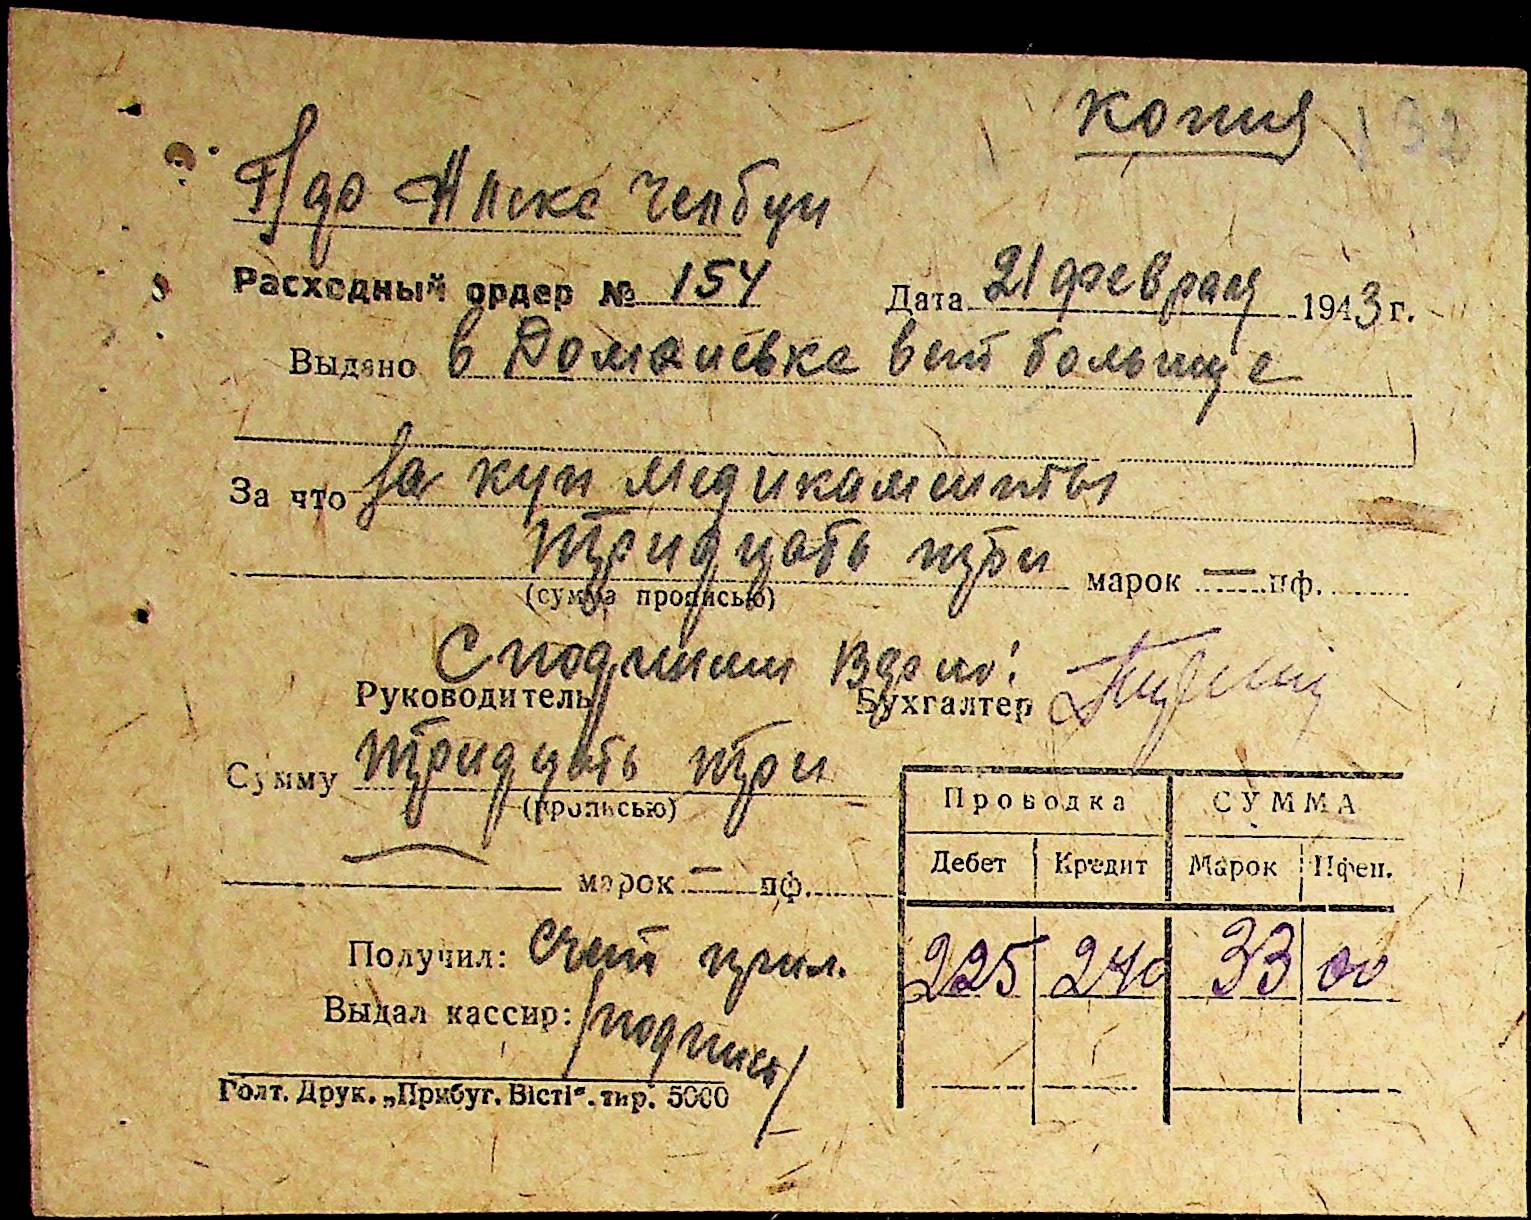 копия 132
Расходный ордер № 154 Дата 21 февраля 1943 г.
Выдано в Доманевке вет больнице
За что за куп медикаменты
тридцать три марок — пф.
(сумма прописью)
С подлинным
Руководитель Бухгалтер
Сумму тридцать три
(прописью)
марок — пф.
Проводка СУММА
Дебет Кредит Марок Пфен.
225 240 33 00
Получил: счет прил.
Выдал кассир: /подпись/
Голт. Друк. „Прибуг. Вісті“. тир. 5000